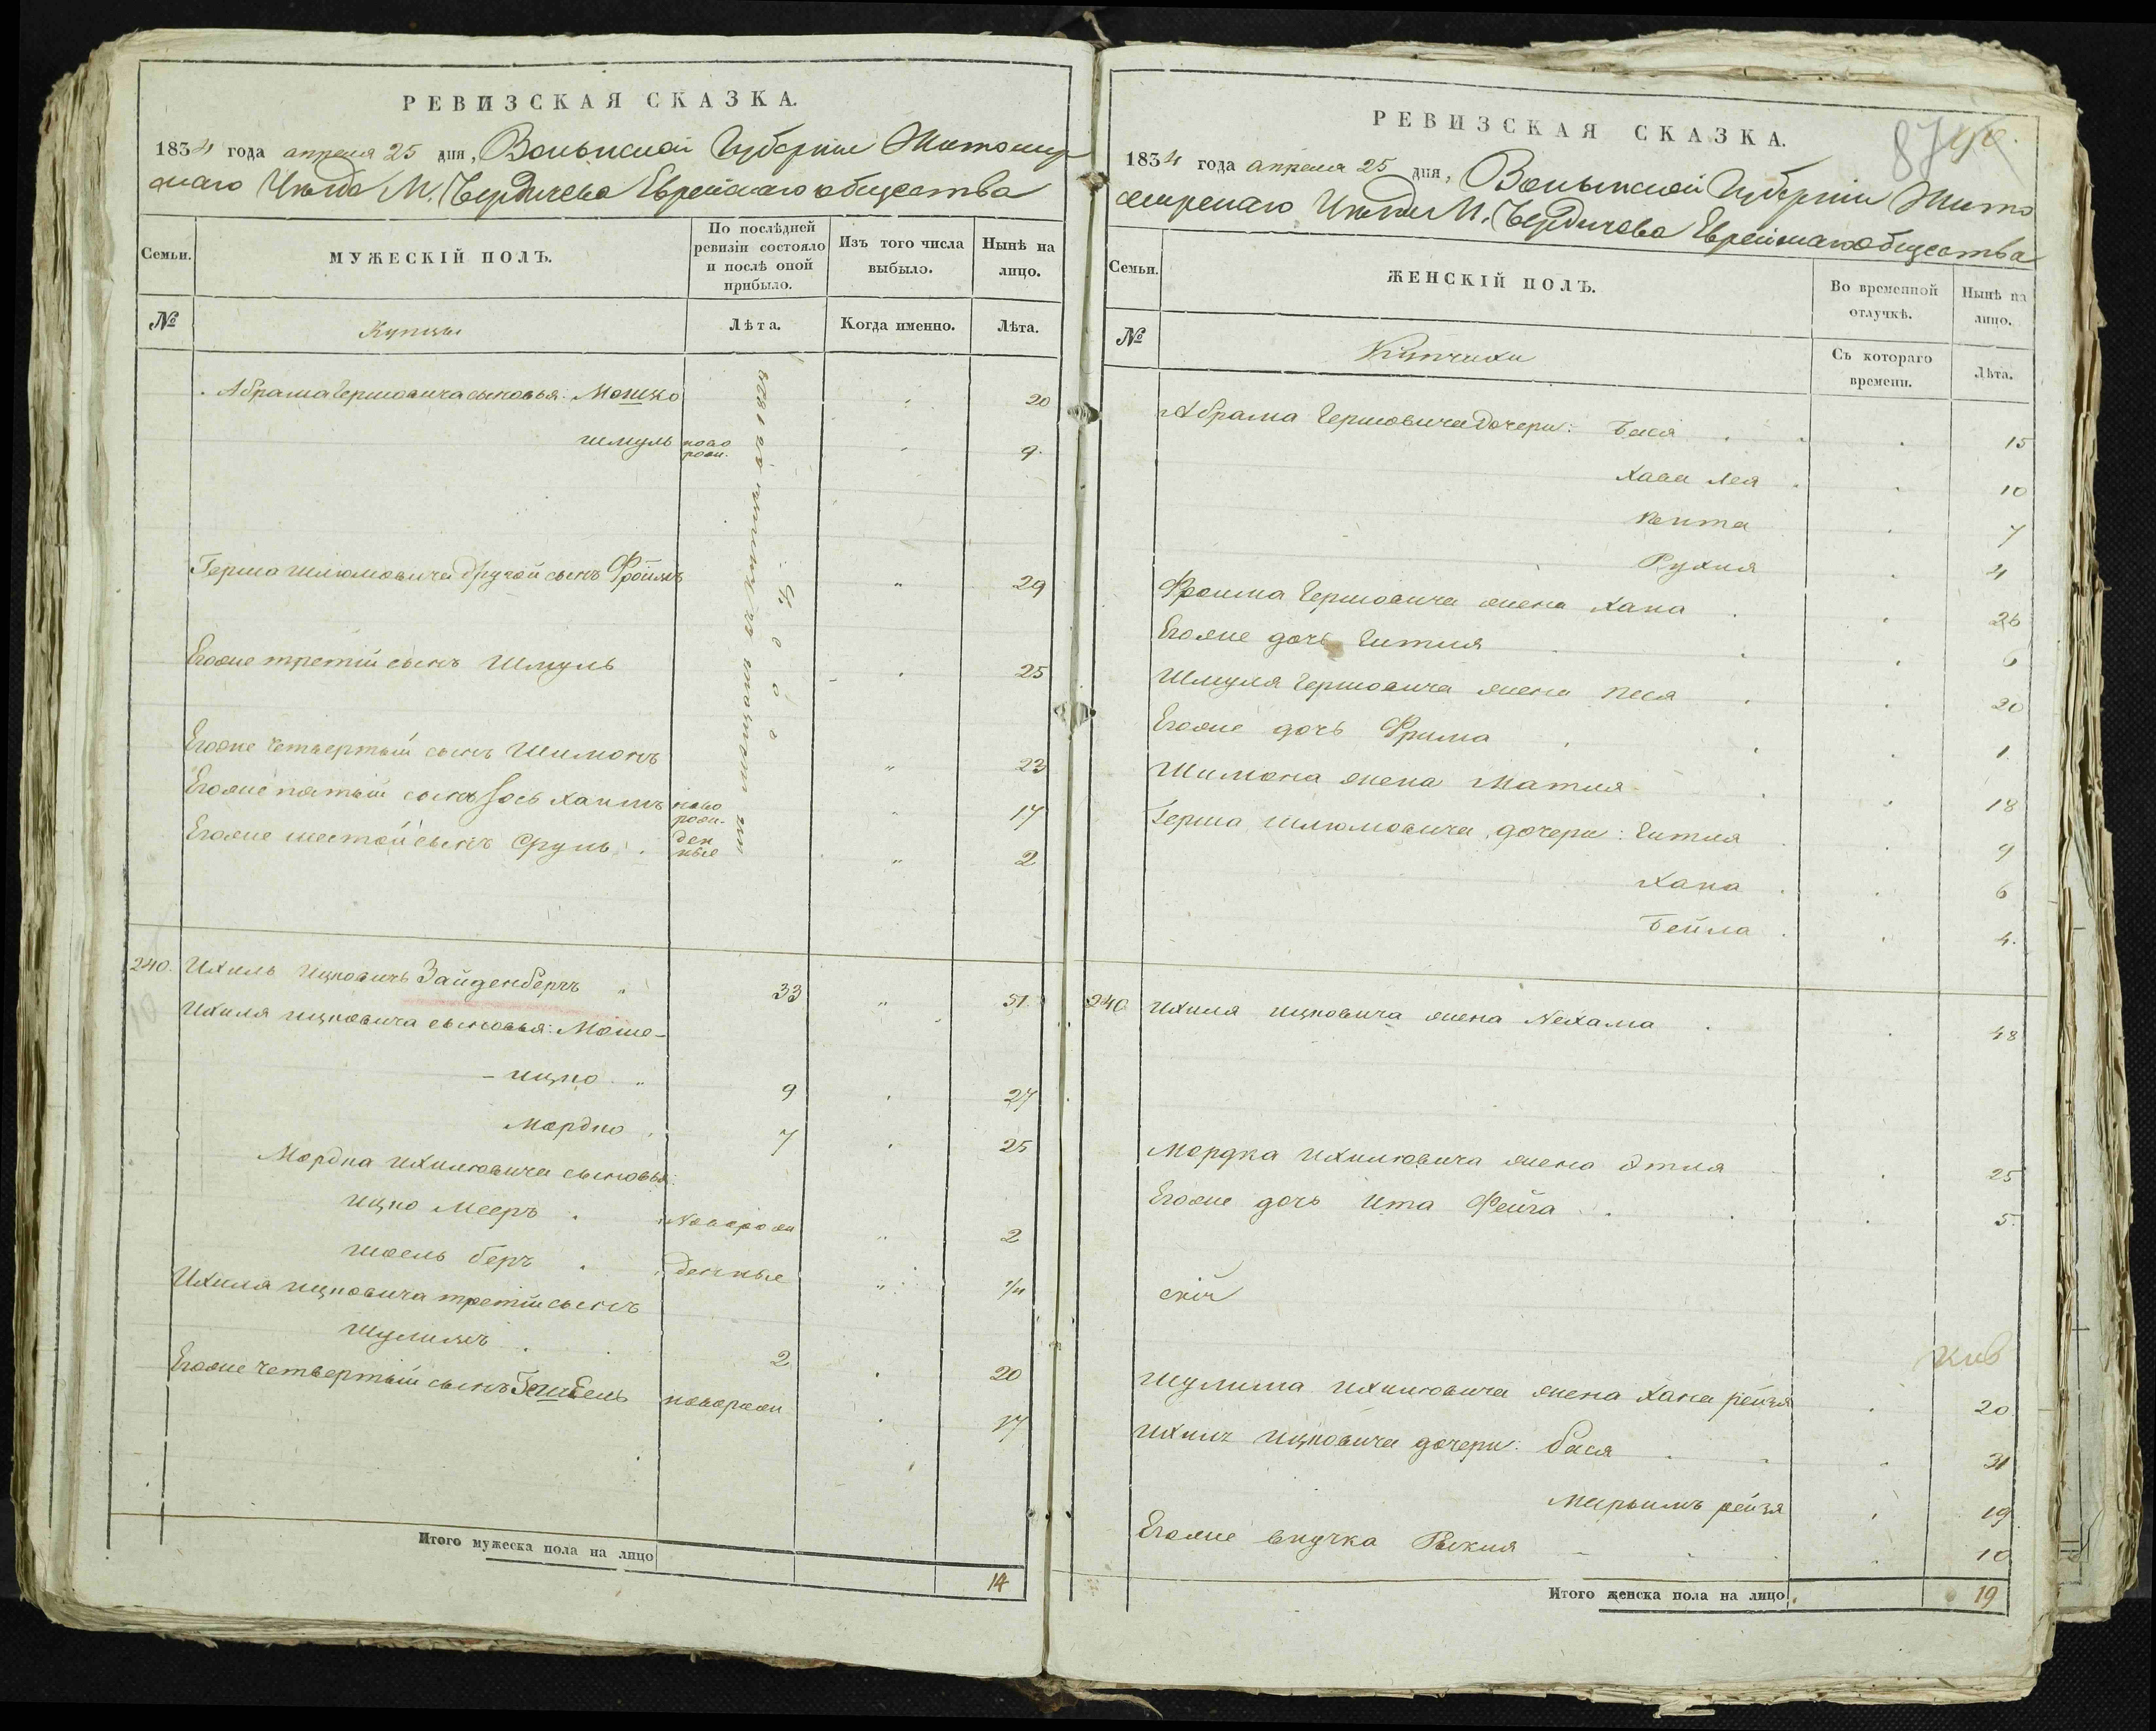 РЕВИЗСКАЯ СКАЗКА.
1834 года апреля 25 дня, Волынской Губернии Житомир
скаго Уезда М. Бердичева Еврейскаго общества
Семьи.
МУЖЕСКІЙ ПОЛЪ.
По послѣдней ревизіи состояло и послѣ оной прибыло.
Изъ того числа выбыло.
Нынѣ на лицо.
№
Купцы
Лѣта.
Когда именно.
Лѣта.
Абрама Гершовича сыновья: Мошко 20
Шмуль ново рож. 9.
Герша Шлiомовича другой сынъ Фроимъ 29
Егоже третій сынъ Шмуль 25
Егоже четвертый сынъ Шимонъ 23
Егоже пятый сынъ Іось Хаимъ ново рож- 17
Егоже шестой сынъ Сруль ден ные 2
240. Ихиль Ицковичъ Зайденбергъ 33 51.
Ихиля Ицковича сыновья: Моше-
- Ицко 9 27
Мордко 7 25
Мордка Ихилiовича сыновья:
Ицко Мееръ Новорож 2
Шоель Беръ денные 1/2
Ихиля Ицковича третій сынъ
Шулимъ 2 20
Егоже четвертый сынъ новорож 17
Итого мужеска пола на лицо 14
РЕВИЗСКАЯ СКАЗКА.
87
1834 года апреля 25 дня, Волынской Губерніи Жито
мирскаго Уезда М. Бердичева Еврейскаго общества
Семьи.
ЖЕНСКІЙ ПОЛЪ.
Во временной отлучкѣ.
Нынѣ на лицо.
№
Купчихи
Съ котораго времени.
Лѣта.
Абрама Гершовича дочери: Бася 15
Хава Лея 10
Пента 7
Рухля 4
Фроима Гершовича жена Хана 26
Егоже дочь Гитля 6
Шмуля Гершовича жена Песя 20
Егоже дочь Фрима 1.
Шимона жена Матля 18
Герша Шлiомовича дочери: Гитля 9
Хана 6
Бейла 4.
240 Ихиля Ицковича жена Нехама 48
Мордка Ихилiовича жена Этля 25
Егоже дочь Ита Фейга 5.
Шулима Ихилiовича жена Хана Рейзя 20
Ихиля Ицковича дочери: Бася 31
Марьимъ Рейзя 19
Егоже внучка 10
Итого женска пола на лицо 19